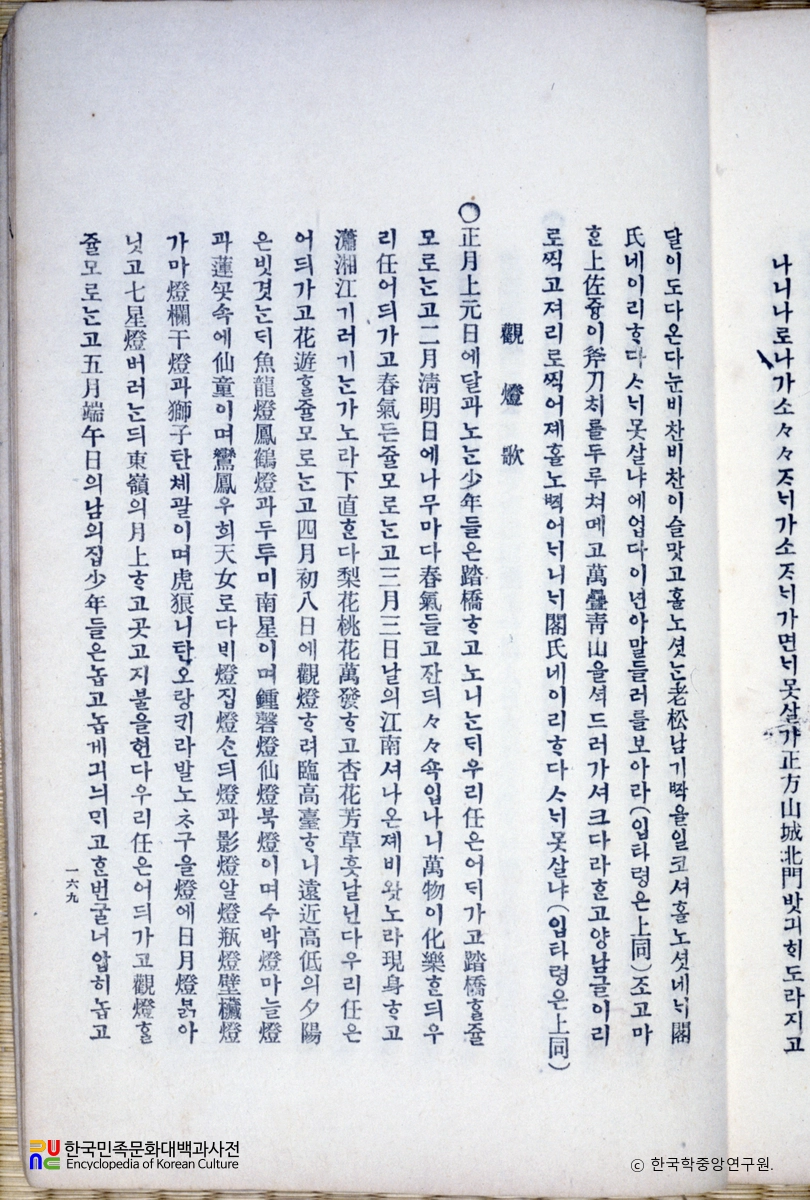 나니나로나가소々々ᄌᆞ네가소ᄌᆞ네가면ᄂᆡ못살냐正方山城北門밧긔ᄒᆡ도라지고
달이도다온다눈비찬비찬이슬맛고홀노셧는老松남기ᄶᅡᆨ을일코셔홀노셧네ᄂᆡ閣
氏네이리ᄒᆞ다ᄉᆞᄂᆡ못살냐에업다이년아말들러를보아라(입타령은上同)조고마
ᄒᆞᆫ上佐즁이斧刀치를두루쳐메고萬疊靑山을셔드러가셔크다라ᄒᆞᆫ고양남글이리
로ᄶᅵᆨ고져리로ᄶᅵᆨ어졔홀노ᄶᅵᆨ어ᄂᆡ니ᄂᆡ閣氏네이리ᄒᆞ다ᄉᆞᄂᆡ못살냐(입타령은上同)
觀燈歌
○正月上元日에달과노는少年들은踏橋ᄒᆞ고노니는ᄃᆡ우리任은어ᄃᆡ가고踏橋ᄒᆞᆯ줄
모로는고二月淸明日에나무마다春氣들고잔듸々々속입나니萬物이化樂ᄒᆞᆫ듸우
리任어듸가고春氣든쥴모로는고三月三日날의江南셔나온졔비왓노라現身ᄒᆞ고
瀟湘江기러기는가노라下直ᄒᆞᆫ다梨花桃花萬發ᄒᆞ고杏花芳草흣날닌다우리任은
어듸가고花遊ᄒᆞᆯ쥴모로는고四月初八日에觀燈ᄒᆞ려臨高臺ᄒᆞ니遠近高低의夕陽
은빗겻는ᄃᆡ魚龍燈鳳鶴燈과두루미南星이며鍾磬燈仙燈북燈이며수박燈마늘燈
과蓮ᄭᅩᆺ속에仙童이며鸞鳳우희天女로다ᄇᆡ燈집燈산듸燈과影燈알燈甁燈壁欌燈
가마燈欄干燈과獅子탄쳬괄이며虎狼니탄오랑키라발노ᄎᆞ구을燈에日月燈붉아
닛고七星燈버러는듸東嶺의月上ᄒᆞ고곳고지불을현다우리任은어듸가고觀燈ᄒᆞᆯ
쥴모로는고五月端午日의남의집少年들은놉고놉게긔늬ᄆᆡ고ᄒᆞᆫ번굴너압히놉고
一六九
한국민족문화대백과사전
Encyclopedia of Korean Culture
© 한국학중앙연구원.